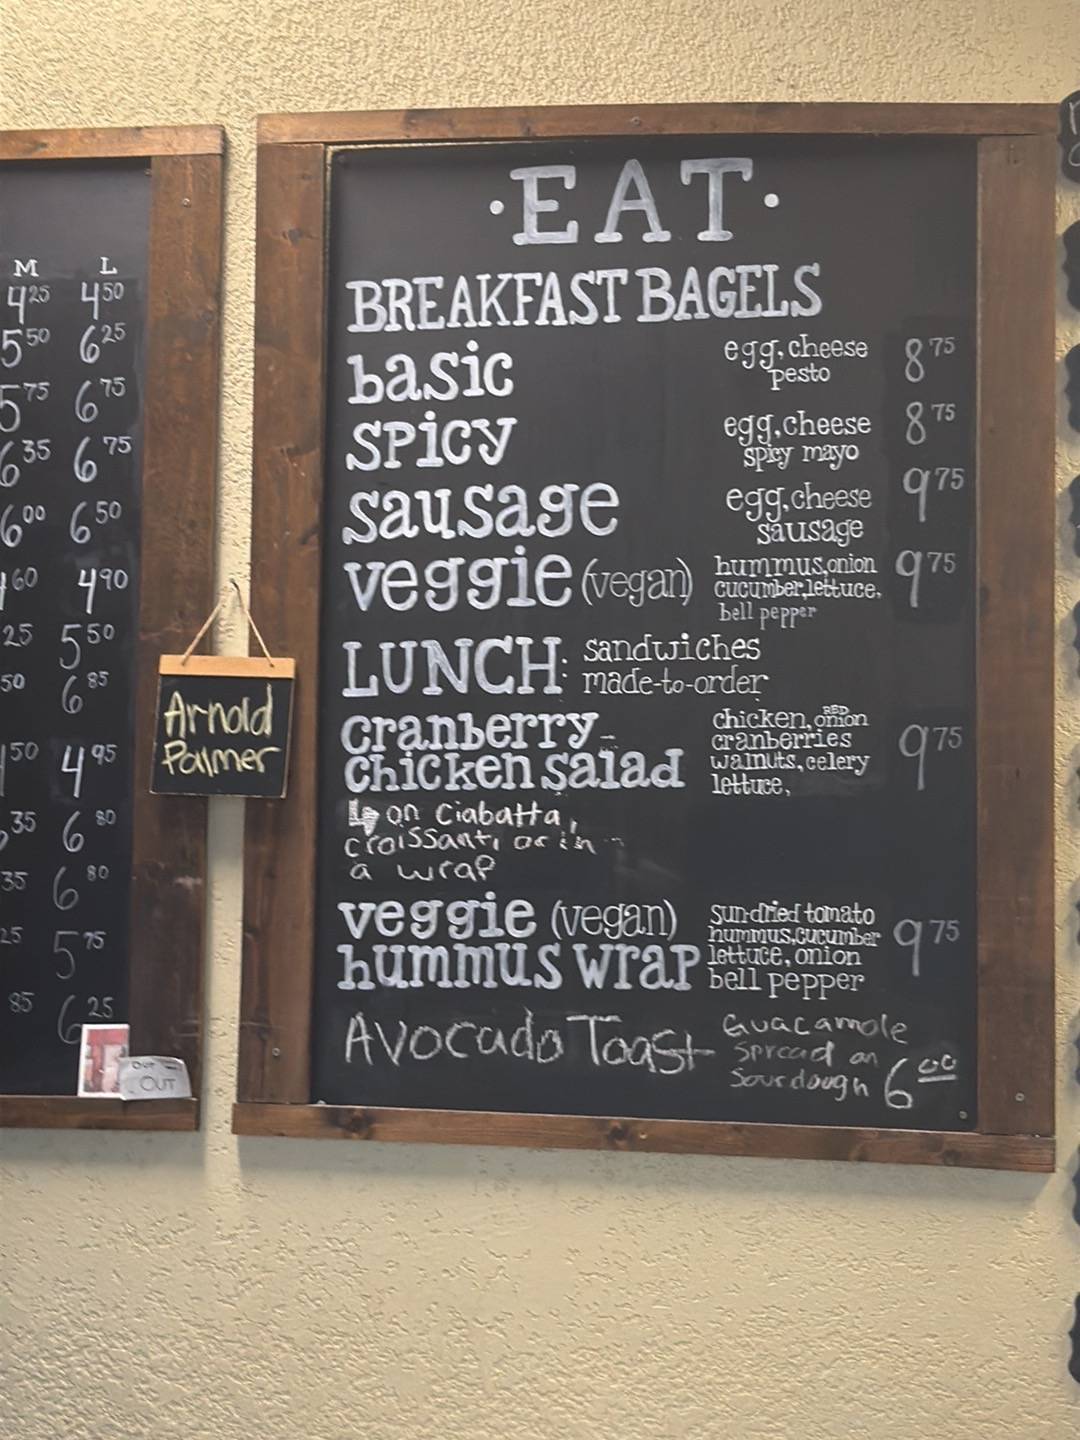 M L
4 25 4 50
5 50 6 25
5 75 6 75
6 35 6 75
6 00 6 50
60 4 90
25 5 50
50 6 85
50 4 95
35 6 80
35 6 80
25 5 75
85 6 25
OUT
Arnold
Palmer
· EAT ·
BREAKFAST BAGELS
basic egg, cheese pesto 8 75
spicy egg, cheese spicy mayo 8 75
sausage egg, cheese sausage 9 75
veggie (vegan) hummus, onion cucumber, lettuce, bell pepper 9 75
LUNCH: sandwiches
made-to-order
cranberry chicken, RED onion
cranberries
chicken salad walnuts, celery 9 75
lettuce,
↳ on Ciabatta,
croissant, or in
a wrap
veggie (vegan) sun-dried tomato
hummus, cucumber 9 75
hummus wrap lettuce, onion
bell pepper
Avocado Toast Guacamole
Spread on
Sourdough 6 00